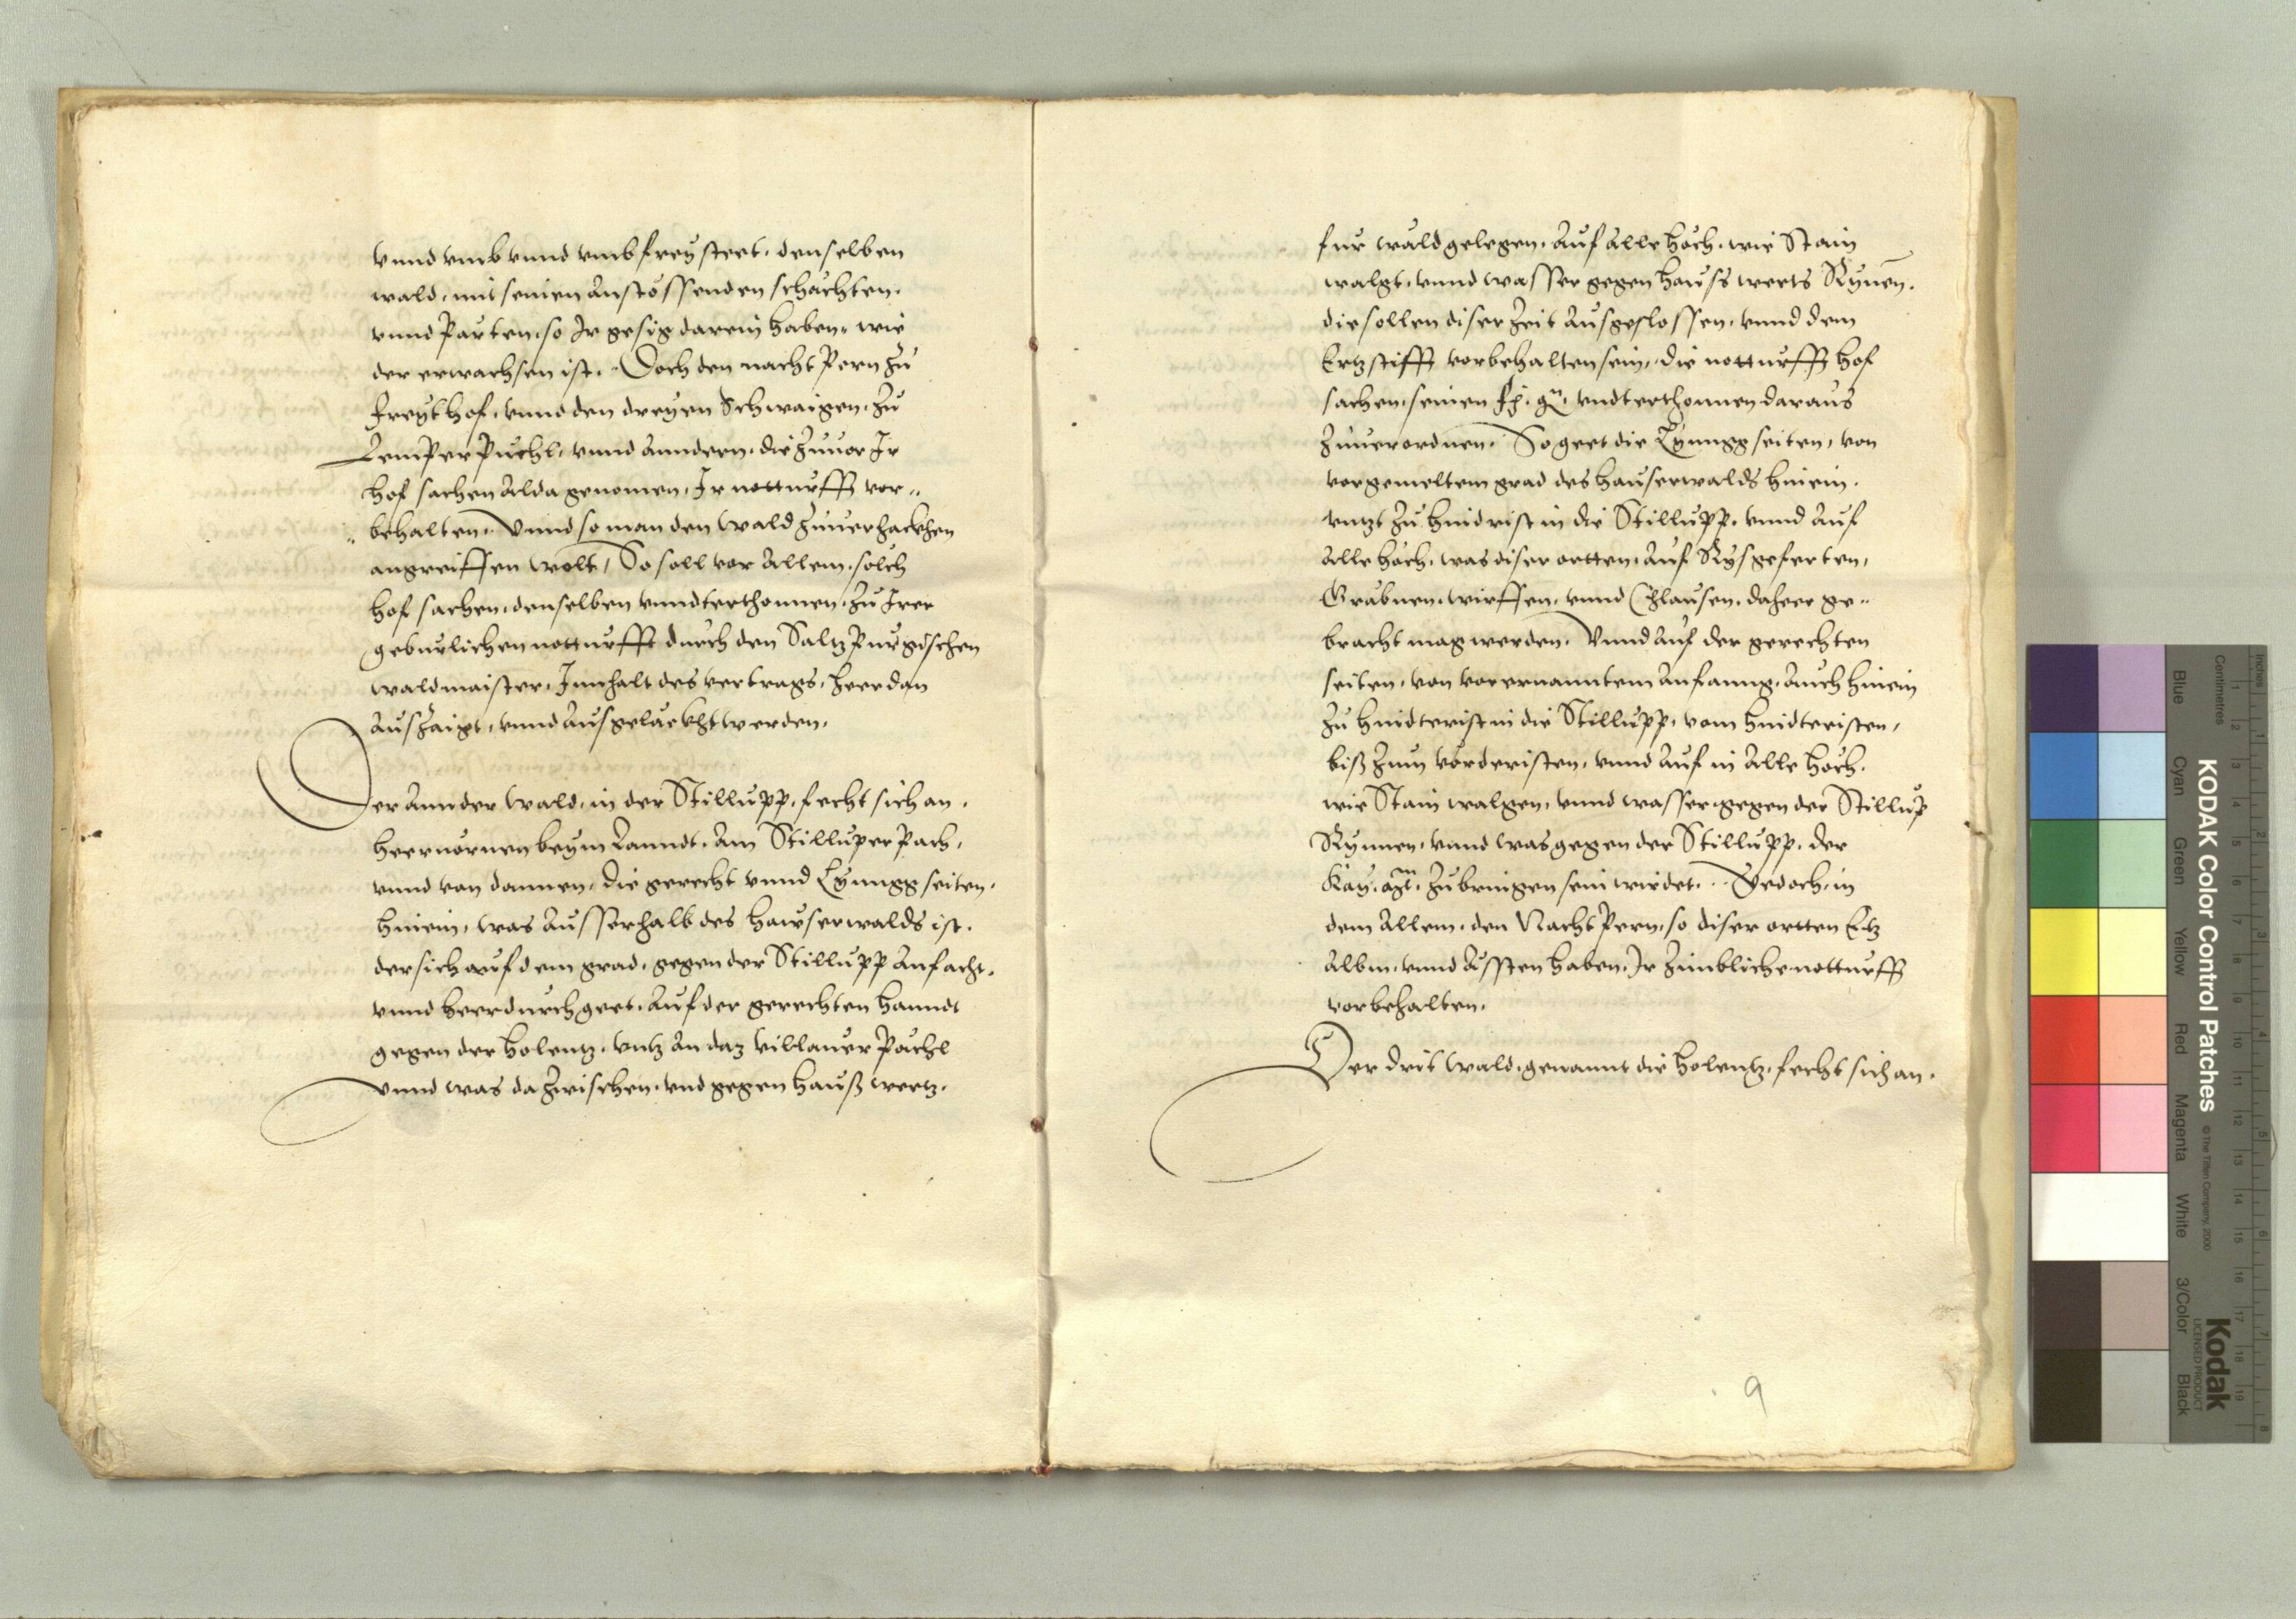 vnnd vmb vnnd vmb freysteet, denselben
wald, mit seinen anstossenden schachten,
vnnd Partten, so Ir gesig darein haben, wie
der erwachsen ist. Doch den nachtpern zu
Freythof, vnnd den dreyen Schwaigen, zu
LempPerPuchl, vnnd anndern, die zuuor Ir
hof sachen alda genomen, Ir notturfft vor„
„behalten. Vnnd so man den wald zuuerhackhen
angreiffen wolt, So soll vor allem, solch
hof sachen, denselben vnndterthonnen, zu Irer
geburlichen notturfft durch den Saltzpurgischen
waldmaister, Innhalt des vertrags, heerdan
auszaigt, vnnd ausgelackht werden.
Der annder wald, in der Stillupp, fecht sich an,
heeruornen beym Lanndt, am StilluperPach,
vnnd von dannen, die gerecht vnnd Lynngg seiten,
hinein, was ausserhalb des hauserwalds ist,
der sich auf dem grad, gegen der Stillupp anfacht,
vnnd heerdurch geet, auf der gerechten hanndt
gegen der holentz, vntz an daz villauer Pachl
vnnd was da zwischen, vnd gegen hauß wertz,
fur wald gelegen, auf alle höch, wie Stain
walgt, vnnd wasser gegen hauss werts Rynnen,
die sollen diser zeit ausgeslossen, vnnd dem
Ertzstifft vorbehalten sein, die notturfft hof
sachen, seinen vndterthonnen daraus
zuuerordnen. So geet die Lynngg seiten, von
vorgemeltem grad des hauserwalds hinein,
vntzt zu hindrist in die Stillupp, vnnd auf
alle höch, was diser ortten, auf Rysgeferten,
Grabnen, wirffen, vnnd Chlausen, daheer ge„
bracht mag werden. Vnnd auf der gerechten
seiten, von vorernanntem anfanng, auch hinein
zu hindterist in die Stillupp, vom hindteristen,
biß zum vörderisten, vnnd auf in alle höch,
wie Stain walgen, vnnd wasser, gegen der Stillup
Rynnen, vnnd was gegen der Stillupp, der
Kay. Mt. zubringen sein wirdet. Yedoch, in
dem allem, den NachtPern, so diser ortten Etz
albm, vnnd assten haben, Ir zimbliche notturfft
vorbehalten.
Der drit wald, genannt die holentz, fecht sich an,
9
KODAK Color Control Patches
© The Tiffen Company, 2000
Kodak
LICENSED PRODUCT
Inches
Centimetres
Blue Cyan Green Yellow Red Magenta White 3/Color Black